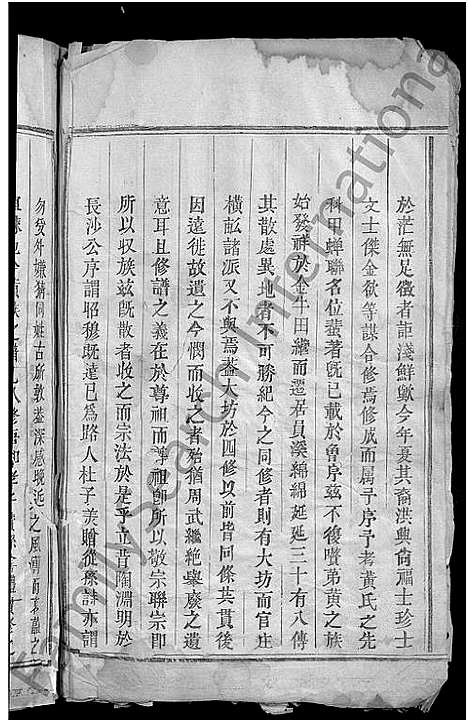 於茫無足徵者詎淺鮮歟今年夏其裔洪興尙福士珍士
文士傑金欲等謀合修焉修成而属予序予考黃氏之先
科甲蟬聯名位蜚著旣已載於魯序茲不復贅弟黃之族
始發祥於金牛田繼而遷居貝溪綿綿延延三十有八傳
其散處異地者不可勝紀今之同修者則有大坊而官庄
橫訟諸派又不與焉蓋大坊於四修以前皆同條其貫後
因遠徙故遺之今憫而收之者殆猶周武繼絶舉廢之遺
意耳且修譜之義在於尊祖而尊祖卽所以敬宗聯宗卽
所以収族茲旣散者收之而宗法於是乎立昔陶淵明於
長沙公序謂昭穆旣遠已爲路人杜子美贈從孫詩亦謂
勿受外嫌猜同姓古所敦蓋深感晚近之風薄而
FamilySearch International